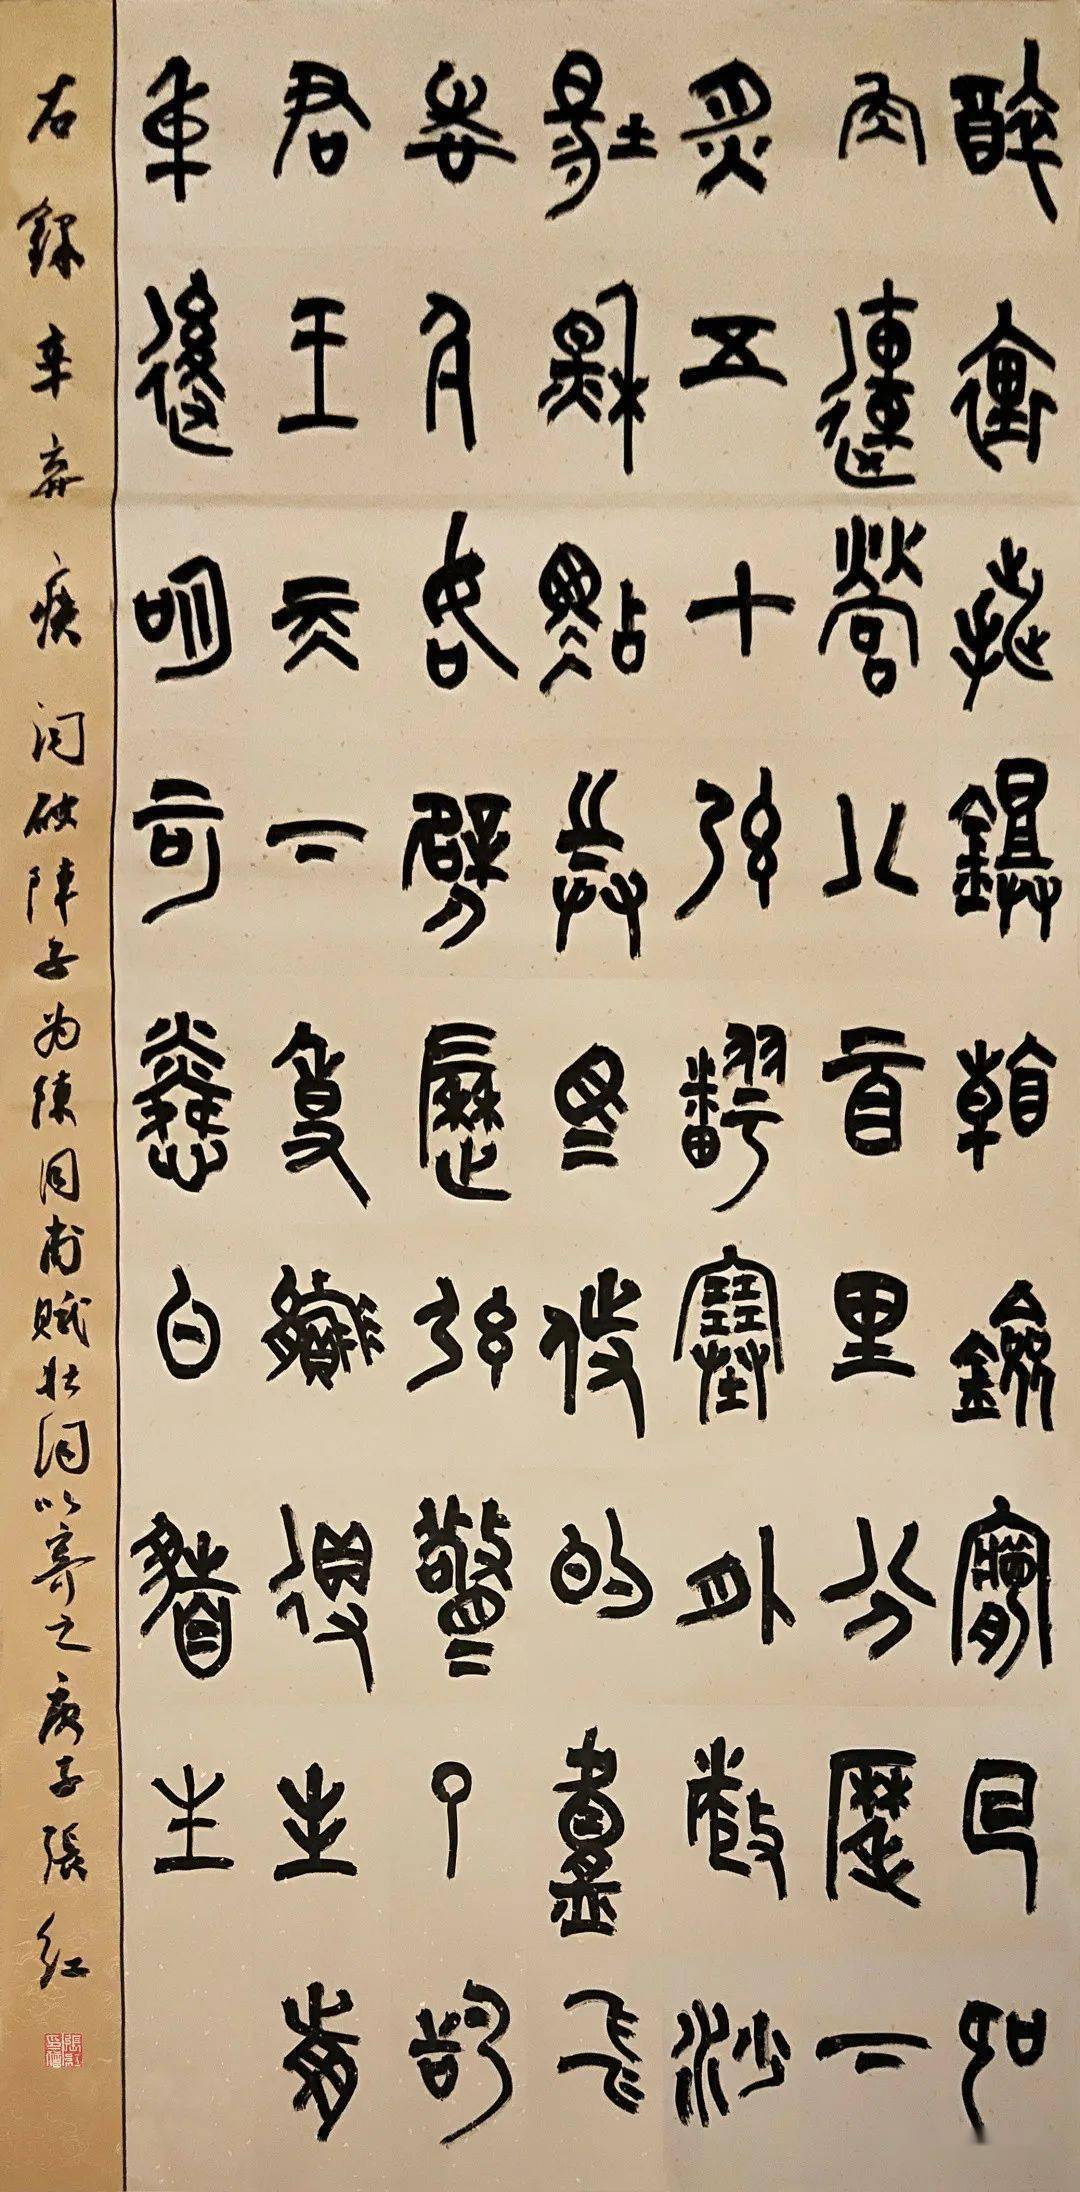 醉裏挑鐙看劍夢回吹
角連營八百里分麾下
炙五十弦翻塞外聲沙
場秋點兵馬作的盧飛
快弓如霹靂弦驚了卻
君王天下事贏得生前
身後名可憐白髮生
右錄辛棄疾詞破陣子為陳同甫賦壯詞以寄之庚子張紅